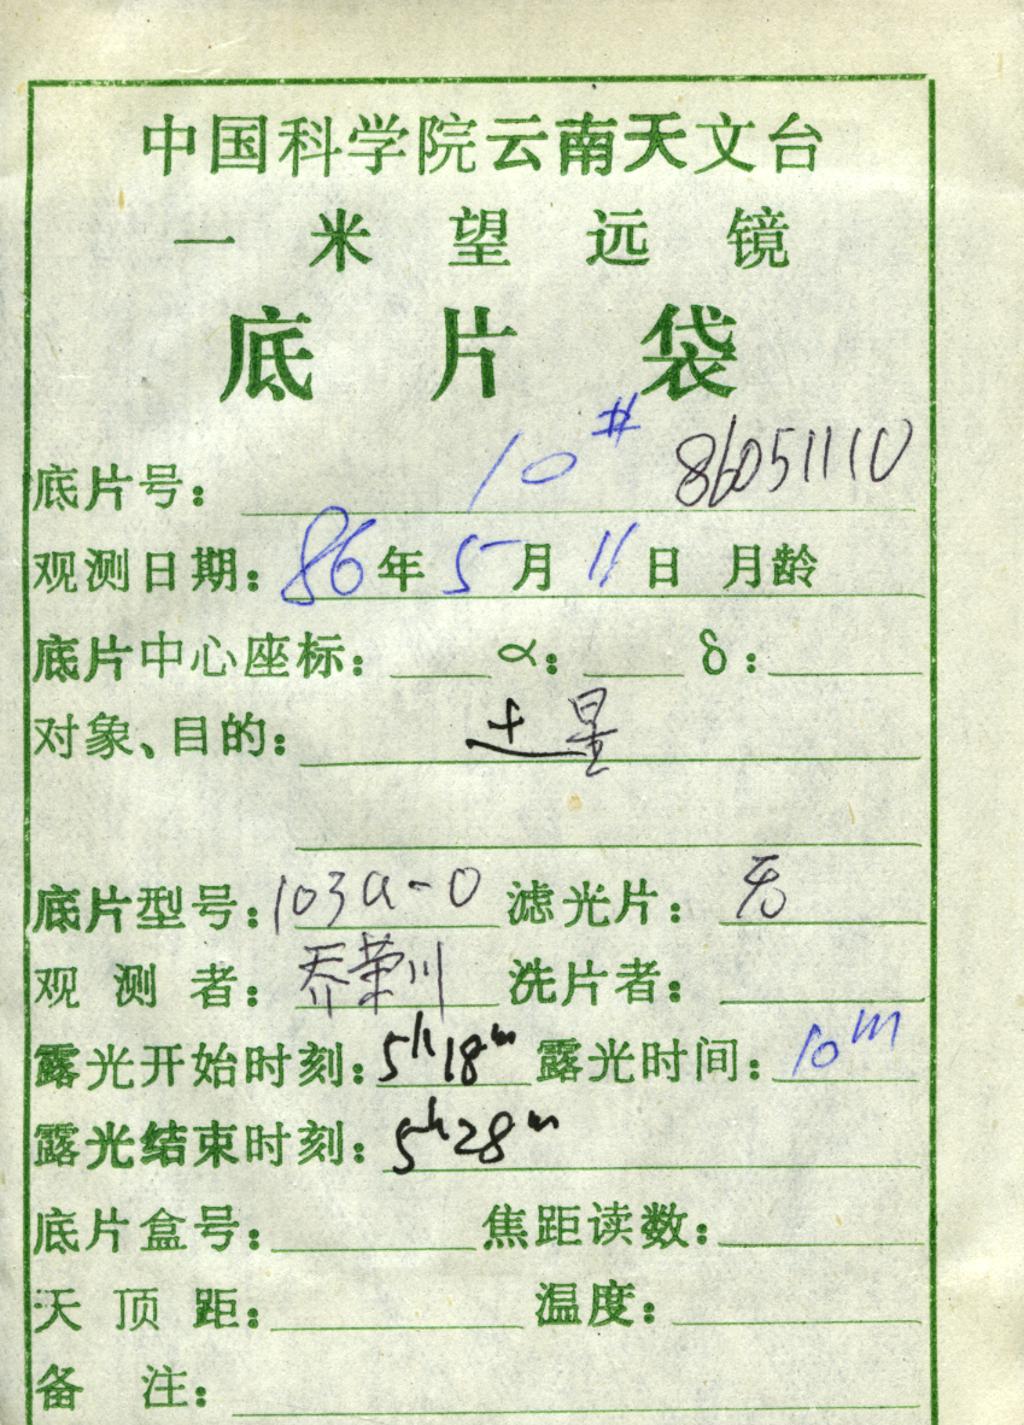 中国科学院云南天文台
一米望远镜
底片袋
底片号: 10# 86051110
观测日期: 86年5月11日 月龄
底片中心座标: α: δ:
对象、目的: 土星
底片型号: 103a-O 滤光片: 无
观测者: 乔荣川 洗片者:
露光开始时刻: 5h18m 露光时间: 10m
露光结束时刻: 5h28m
底片盒号: 焦距读数:
天顶距: 温度:
备注: